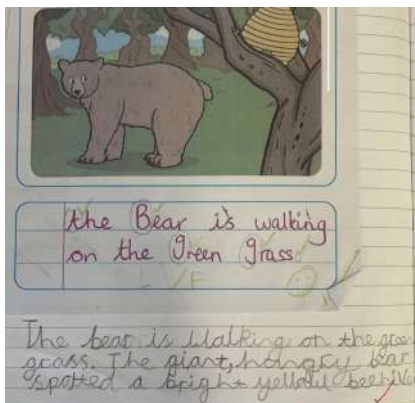 the Bear is walking
on the Green grass
L F
The bear is walking on the gree
grass. The giant, hongry bear
spotted a bright yellow beehive